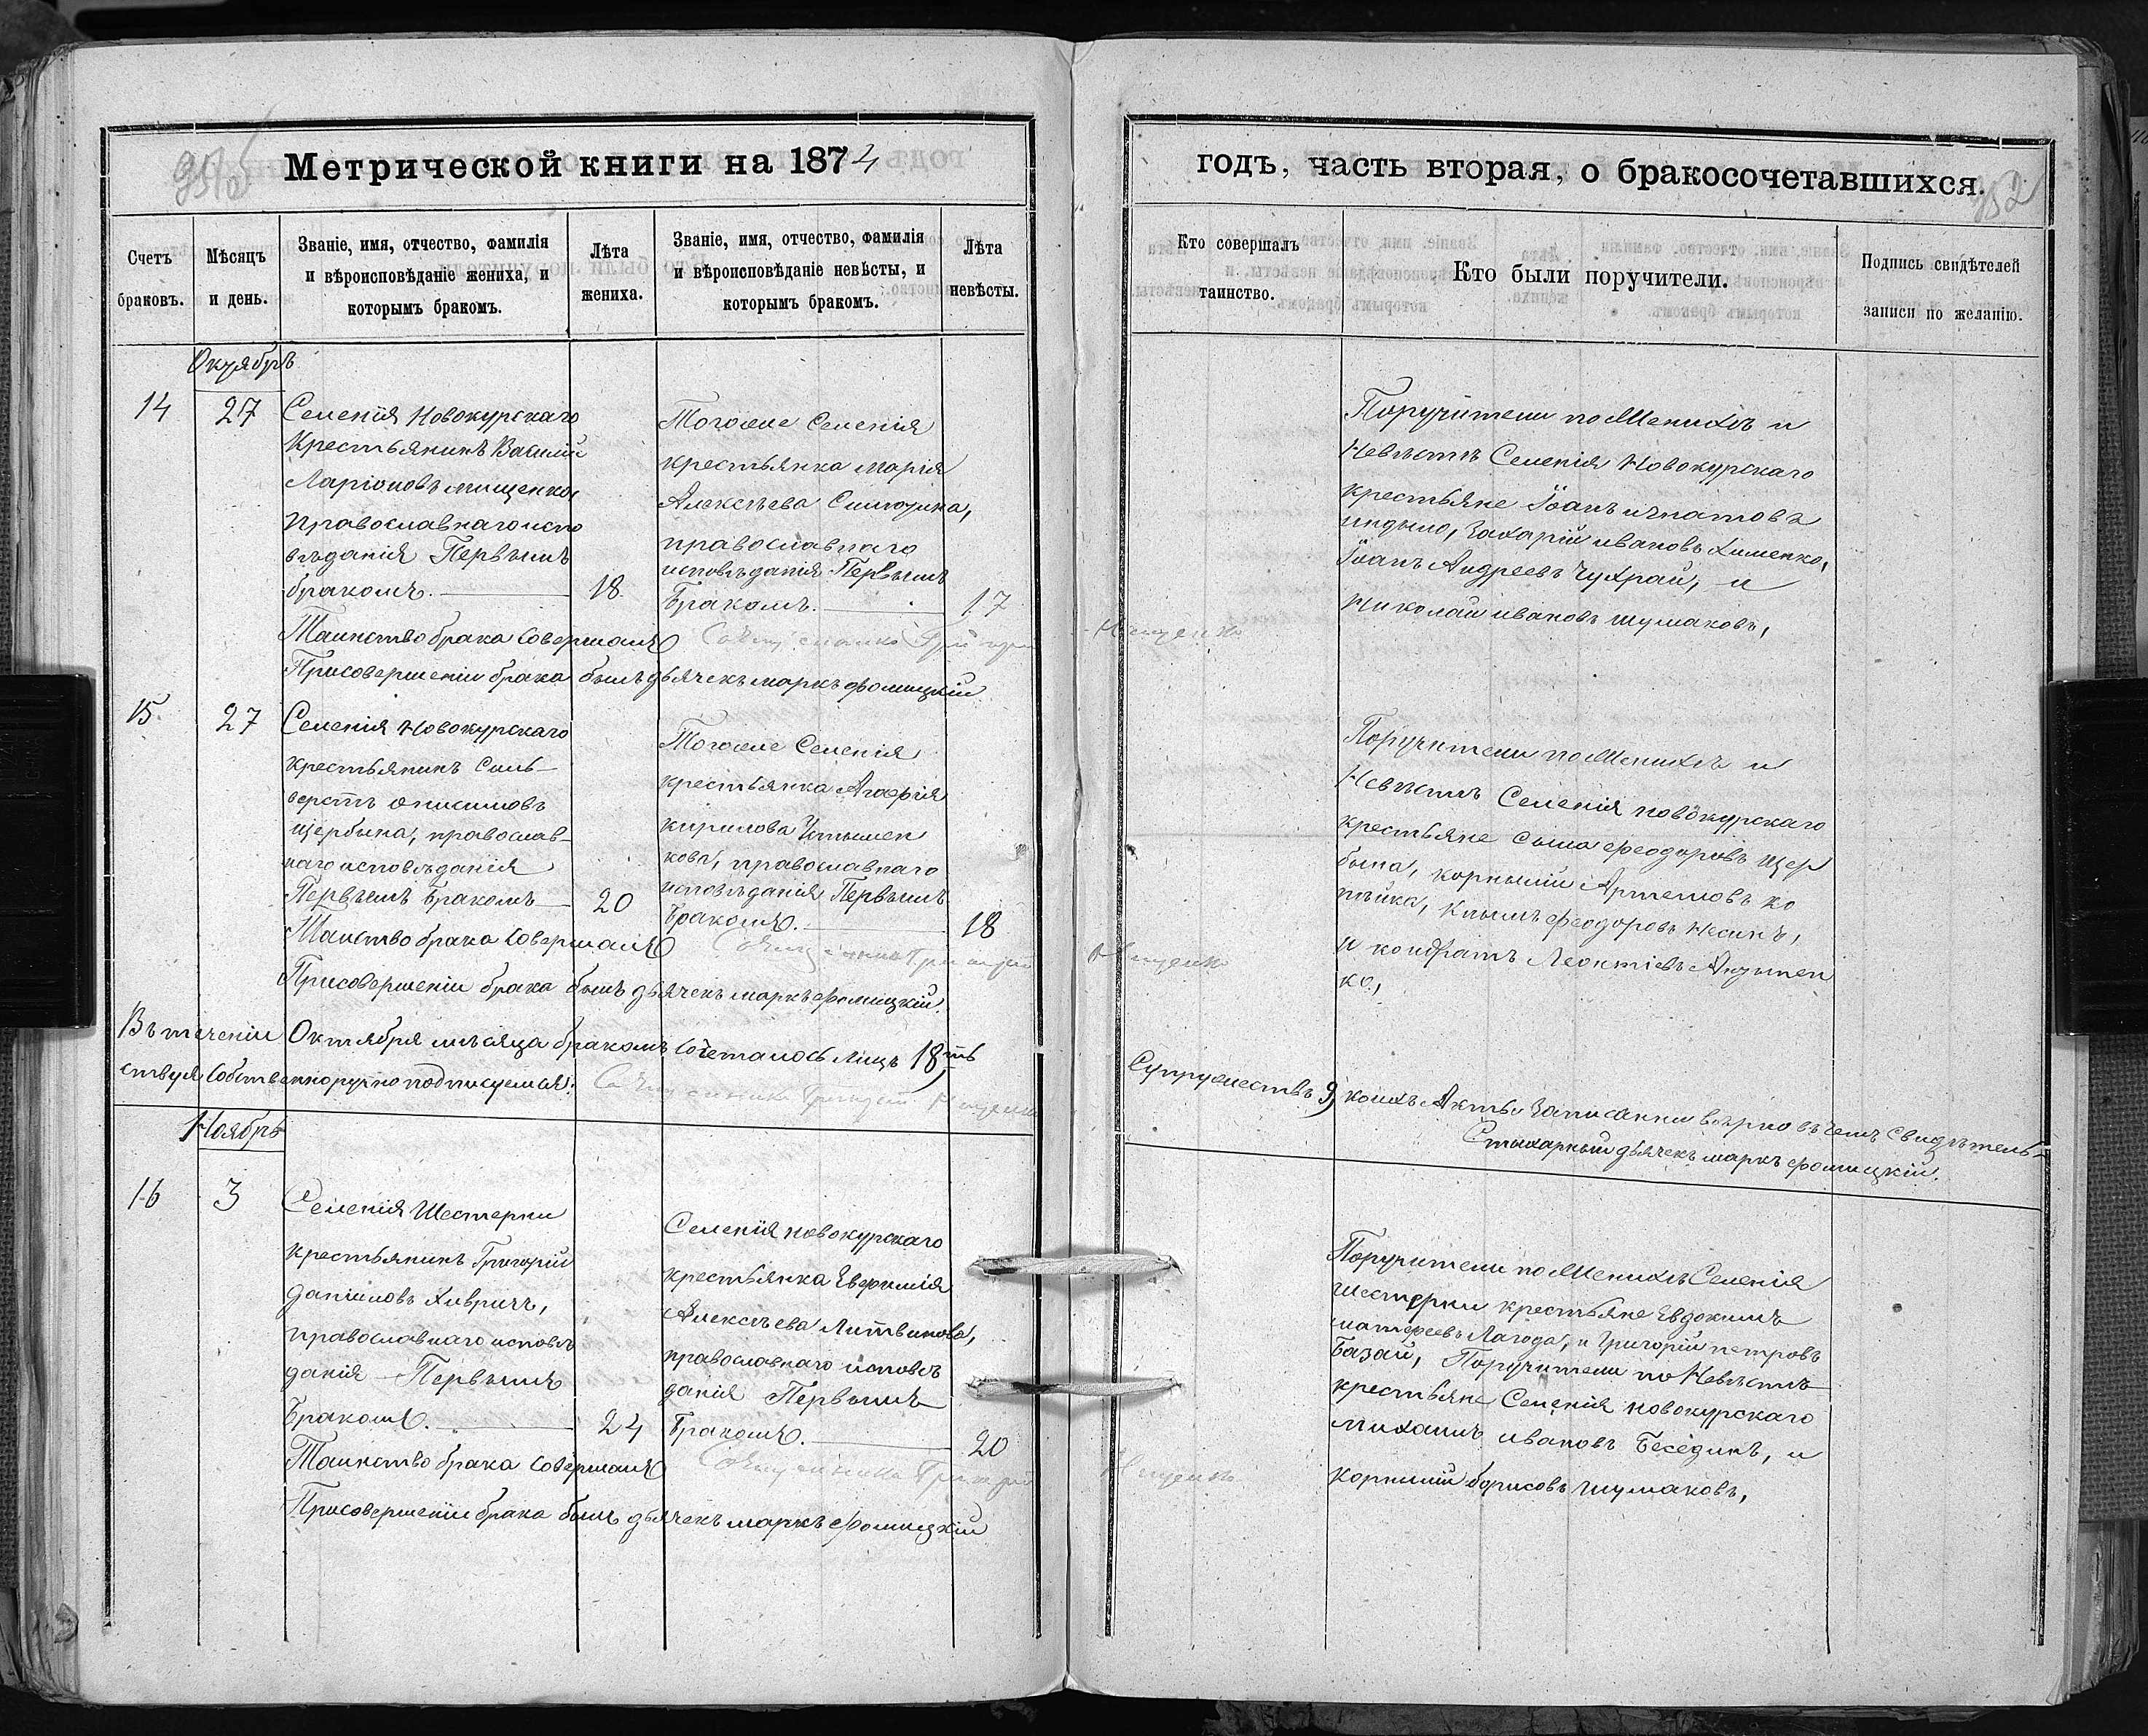 Метрической книги на 1874
Счетъ браковъ.
Мѣсяцъ и день.
Званіе, имя, отчество, фамилія и вѣроисповѣданіе жениха, и которымъ бракомъ.
Лѣта жениха.
Званіе, имя, отчество, фамилія и вѣроисповѣданіе невѣсты, и которымъ бракомъ.
Лѣта невѣсты.
Октябрь
14
27
Селенія Новокурскаго
Крестьянинъ Василій
Ларіоновъ мищенко
православнаго испо
вѣданія Первымъ
бракомъ.
18
Тогоже Селенія
крестьянка Марія
Алексѣева
православнаго
исповѣданія Первымъ
Бракомъ.
17
Таинство брака Совершалъ Священникъ Григорій
Присовершеніи брака былъ дьячекъ маркъ фомицкій
15.
27
Селенія Новокурскаго
крестьянинъ Силь-
верстъ онисимовъ
щербина, православ-
наго исповѣданія
Первымъ Бракомъ
20
Тогоже Селенія
крестьянка Агафія
кирилова
кова, православнаго
исповѣданія Первымъ
Бракомъ.
18
Таинство брака Совершалъ Священникъ Григорій
Присовершеніи брака былъ дьячекъ маркъ фомицкій.
Въ теченіи Октября мѣсяца бракомъ Сочеталось лицъ 18ть
ствуя Собственноручно подписуемся: Священникъ Григорій
Ноябрь
16
3
Селенія Шестерни
крестьянинъ Григорій
Даніиловъ Хиврич,
православнаго исповѣ
данія Первымъ
Бракомъ.
24
Селенія новокурскаго
крестьянка Евфимія
Алексѣева Литвинова,
православнаго исповѣ
данія Первымъ
Бракомъ.
20
Таинство брака Совершалъ Священникъ Григорій
Присовершеніи брака былъ дьячекъ маркъ фомицкій
годъ, часть вторая, о бракосочетавшихся.
352
Кто совершалъ таинство.
Кто были поручители.
Подпись свидѣтелей записи по желанію.
Поручители по Женихѣ и
Невѣстѣ Селенія Новокурскаго
крестьяне Іоанъ игнатовъ
индыло, Захарій ивановъ Хименко,
Іоанъ Андреевъ Чухрай, и
Николай ивановъ шумаковъ,
Поручители по Женихѣ и
Невѣстѣ Селенія новокурскаго
крестьяне Сыла феодоровъ щер
бына, корнылій Артемовъ ко
пѣйка, феодоровъ Несинъ,
и кондратъ Леонтіевъ
ко,
Супружествъ 9, коихъ Акты Записанни вѣрно въ чемъ Свидѣтель-
Стихарный дьячекъ маркъ фомицкій.
Поручители по Женихѣ Селенія
Шестерни крестьяне Евдокимъ
матфеевъ Лагода, и Григорій петровъ
Базай, Поручители по Невѣстѣ
крестьяне Селенія новокурскаго
михаилъ ивановъ Бесединъ, и
корнилій борисовъ шумаковъ,